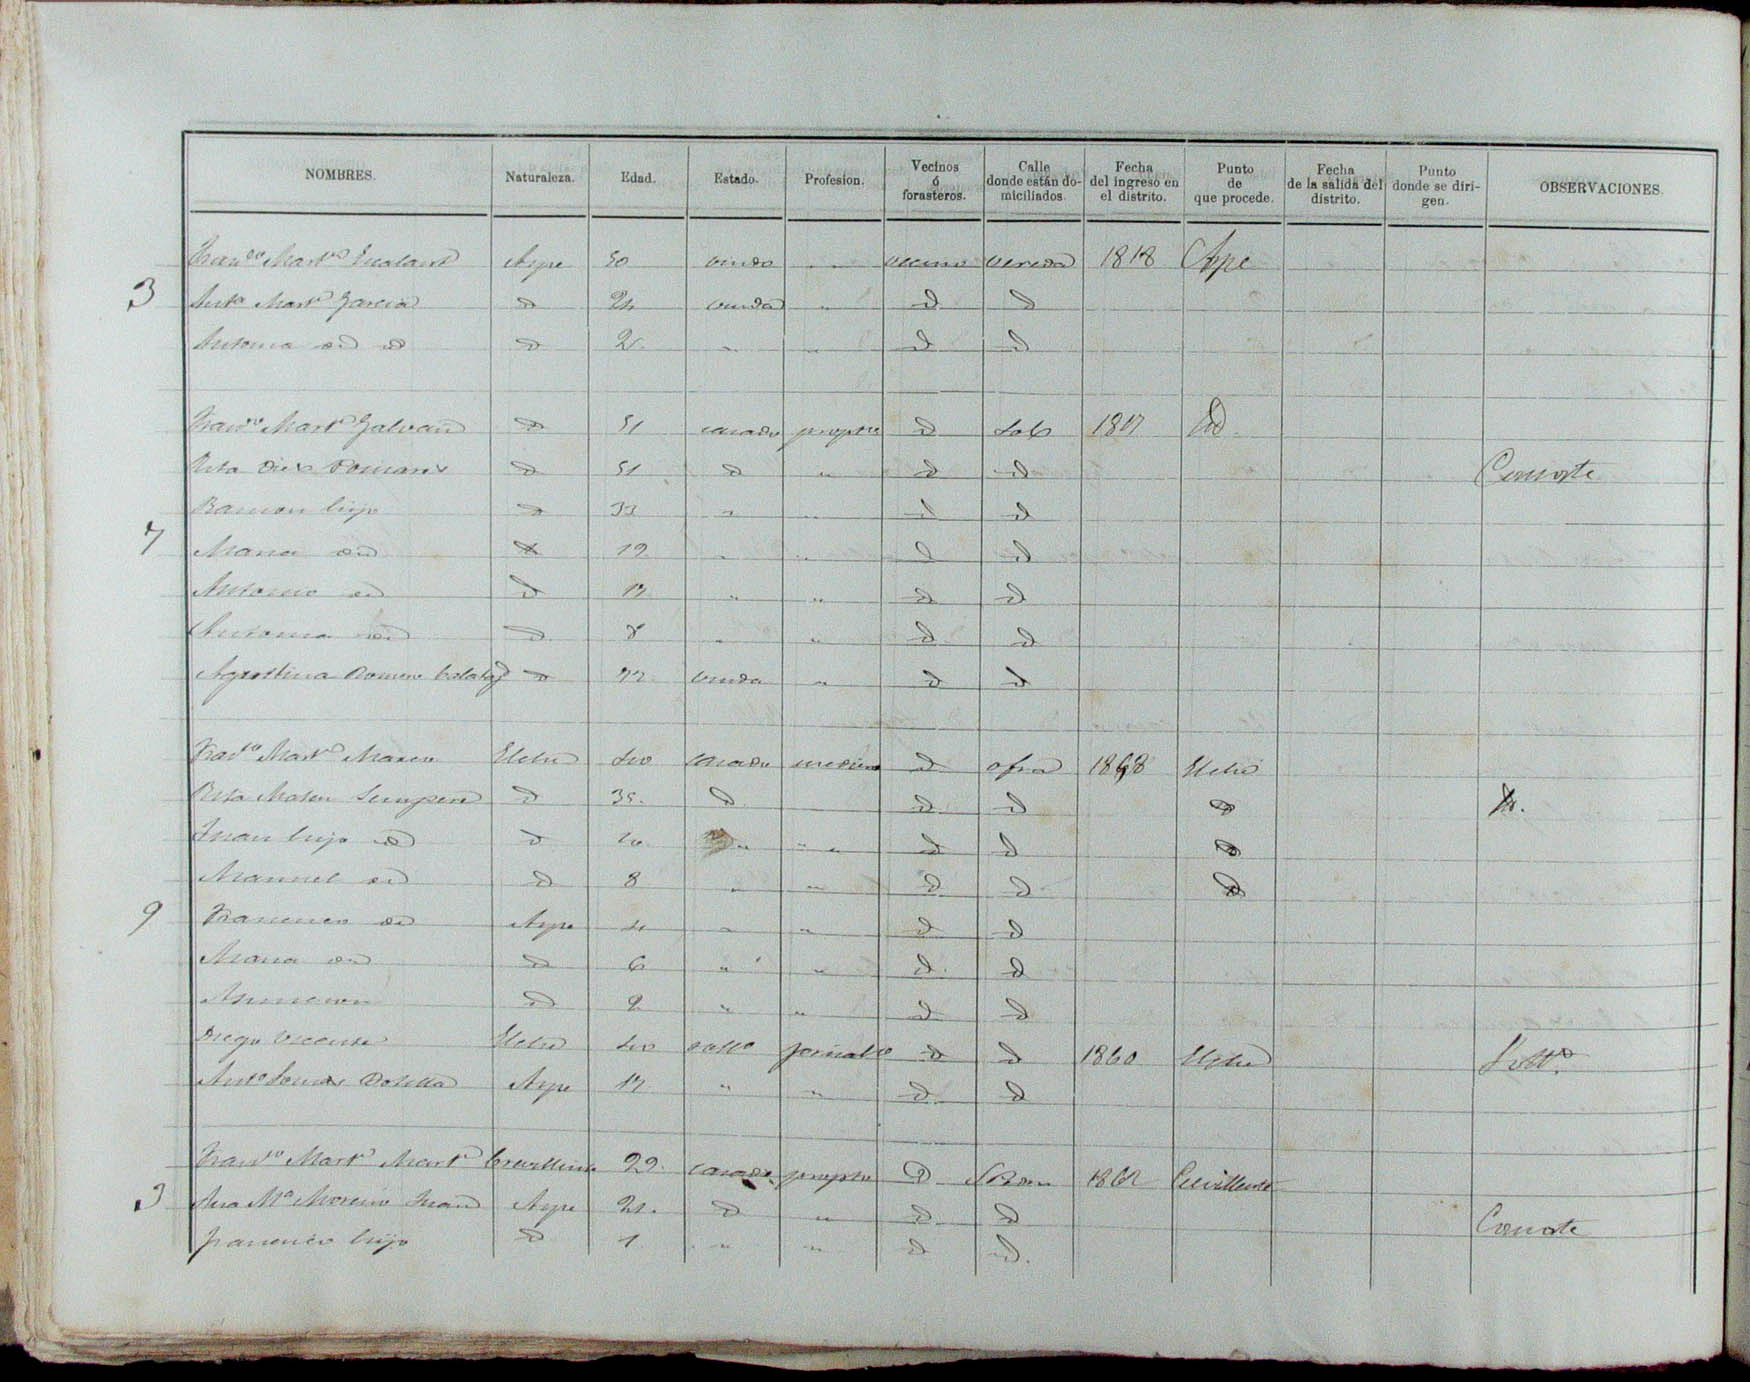 NOMBRES. Naturaleza. Edad. Estado. Profesion. Vecinos ó forasteros. Calle donde están domiciliados. Fecha del ingreso en el distrito. Punto de que procede. Fecha de la salida del distrito. Punto donde se dirigen. OBSERVACIONES.
Aspe 50 viudo " vecino vereda 1818 Aspe
3 Anta Martz Garcia d 24 viuda " d d
Antonia id id d 2 " " d d
Franco Martz Galvañ d 51 casado proptro d Sol 1817 id
Rita d 51 d " d d Consorte
Ramon hijo d 33 " " d d
7 Maria id d 19 " " d d
Antonio id d 17 " " d d
Antonia id d 8 " " d d
Agustina Romero d 77 viuda " d d
Franco Martz Elche 40 casado medico d 1868 Elche
Rita Sempere d 35 d d d d id.
Juan hijo id d 10 " " d d d
Manuel id d 8 " " d d d
9 Francisco id Aspe 4 " " d d
Maria id d 6 " " d d
Asuncion d 2 " " d d
Diego Vicente Elche 40 solto d d 1860 Elche Soltº
Antº Botella Aspe 17 " " d d
Franco Martz Martz Crevillente 29 casado proptro d 1862 Crevillente
3 Ana Mª Aspe 21 d " d d Consorte
Francisco hijo d 1 " " d d